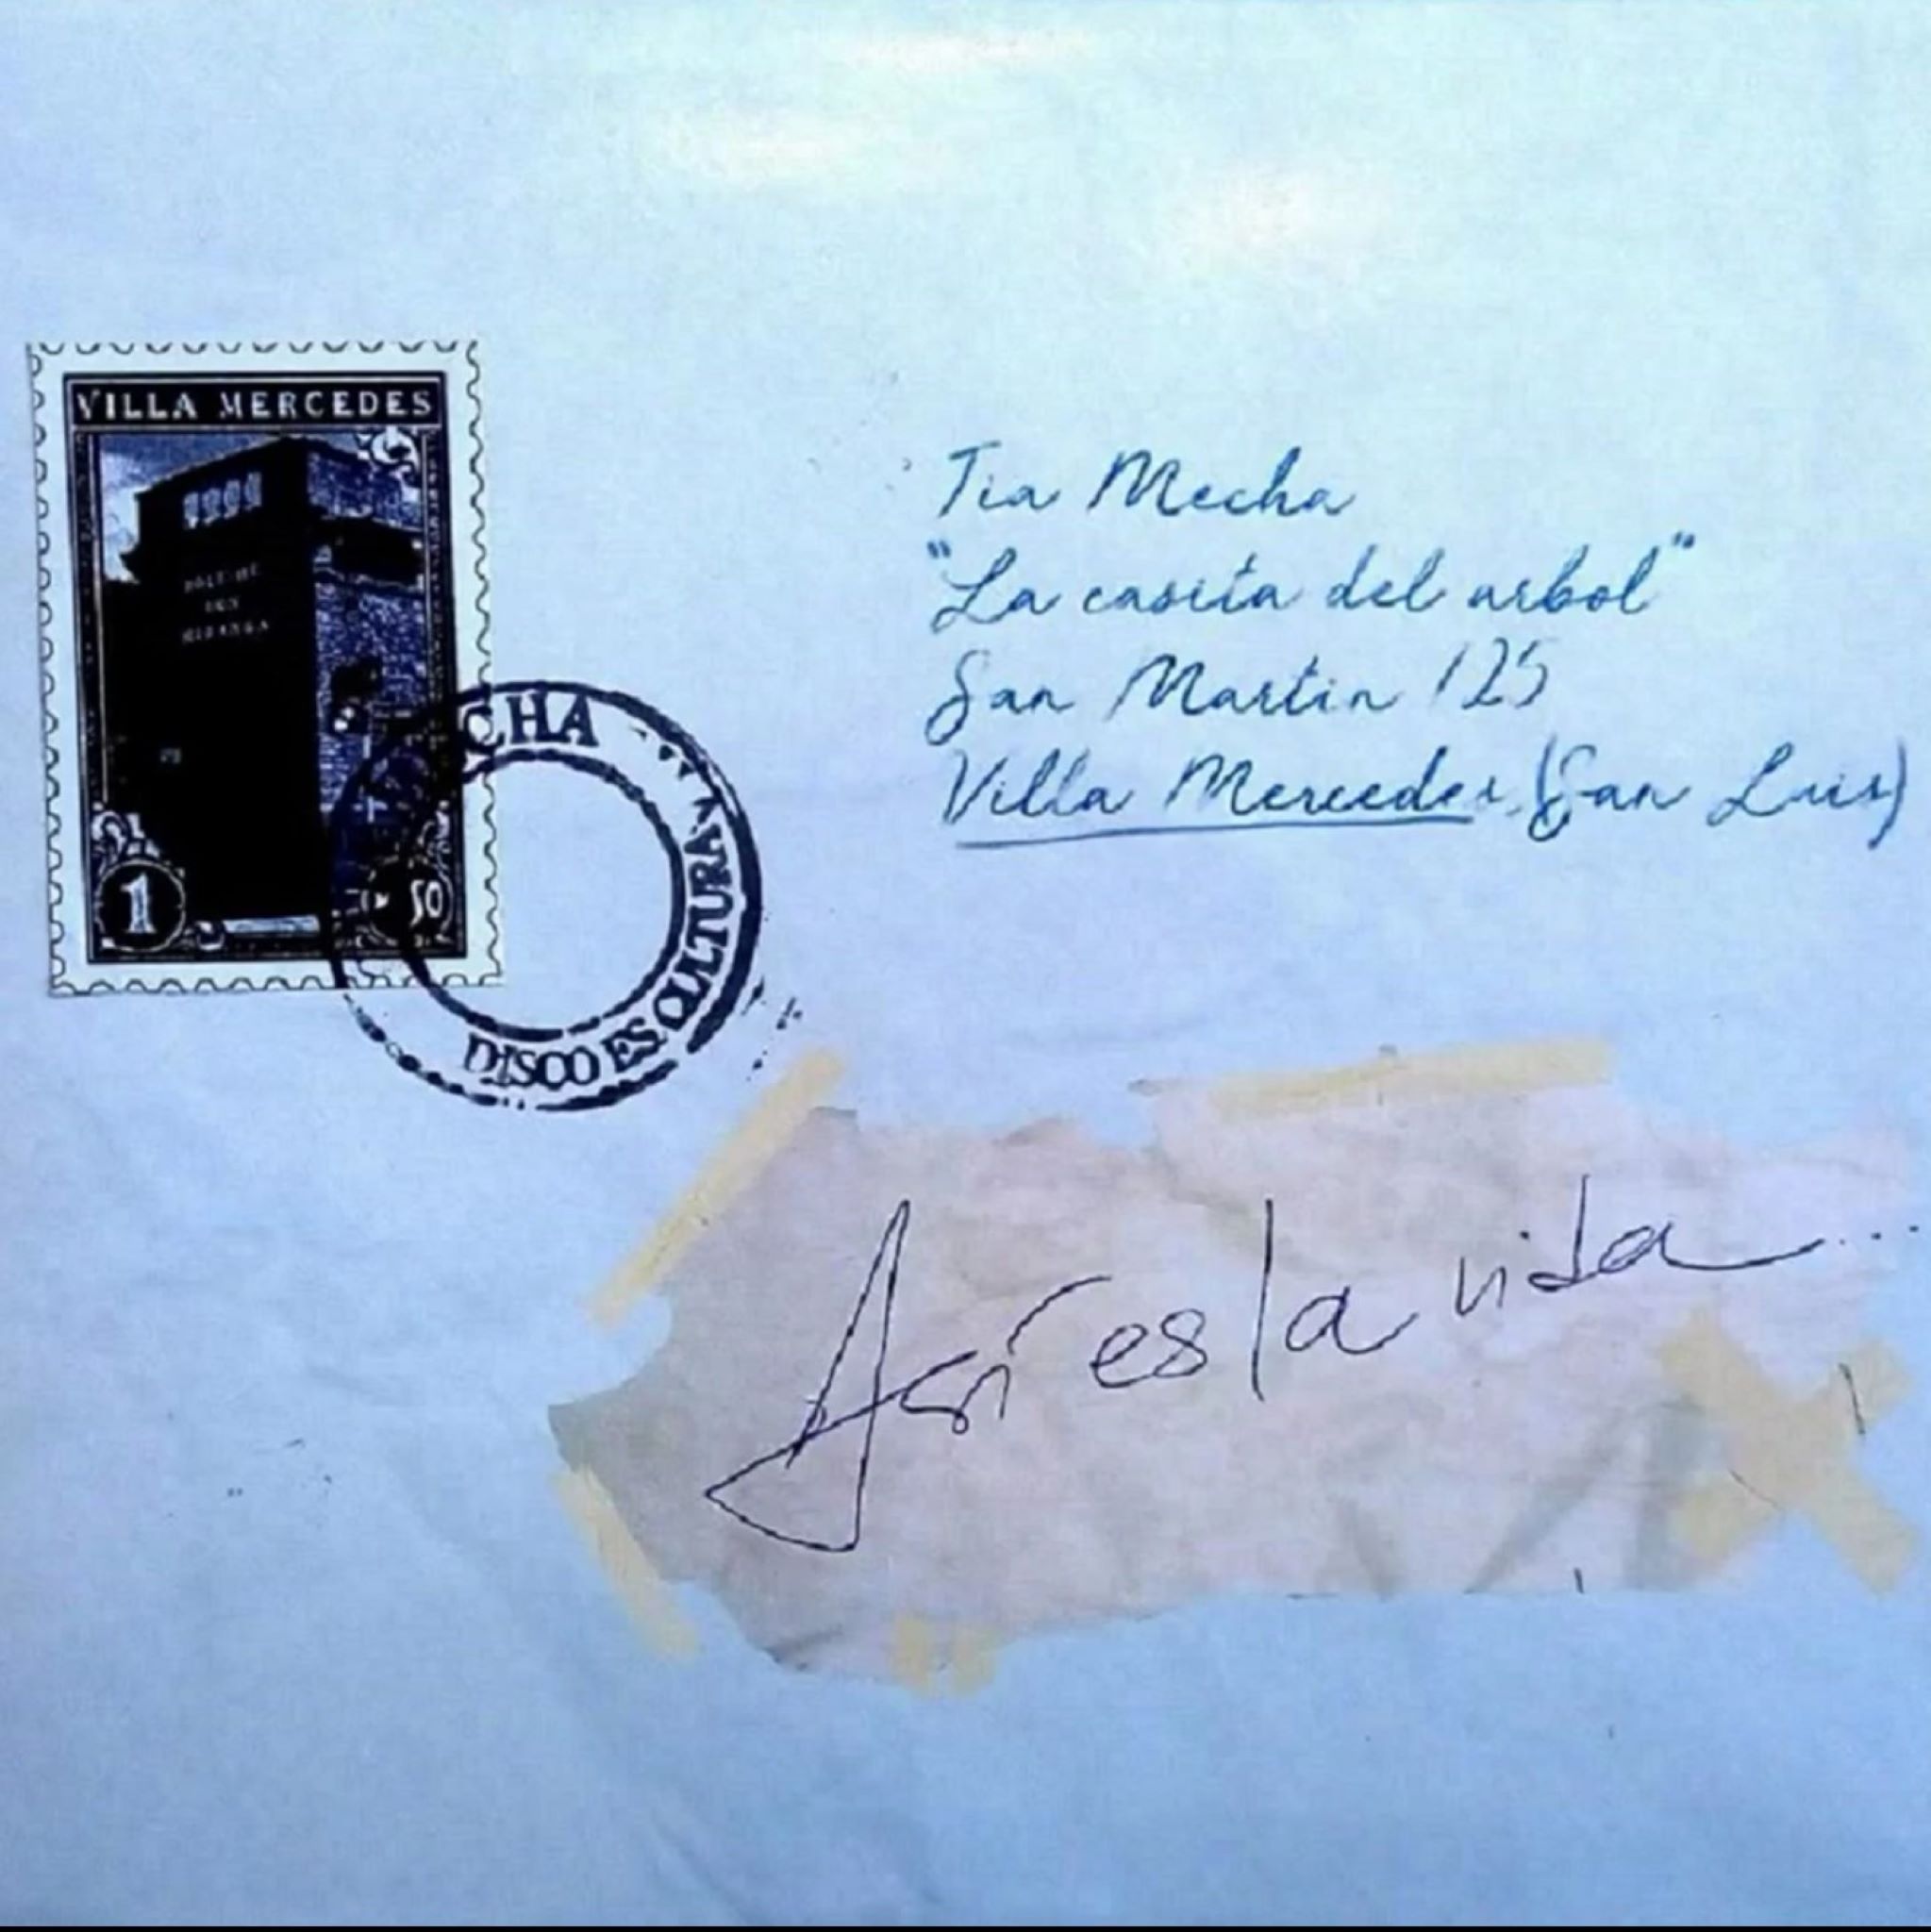 VILLA MERCEDES
1
50
CHA
DISCO ES CULTURA
Tia Mecha
"La casita del arbol"
San Martin 125
Villa Mercedes (San Luis)
Así es la vida...